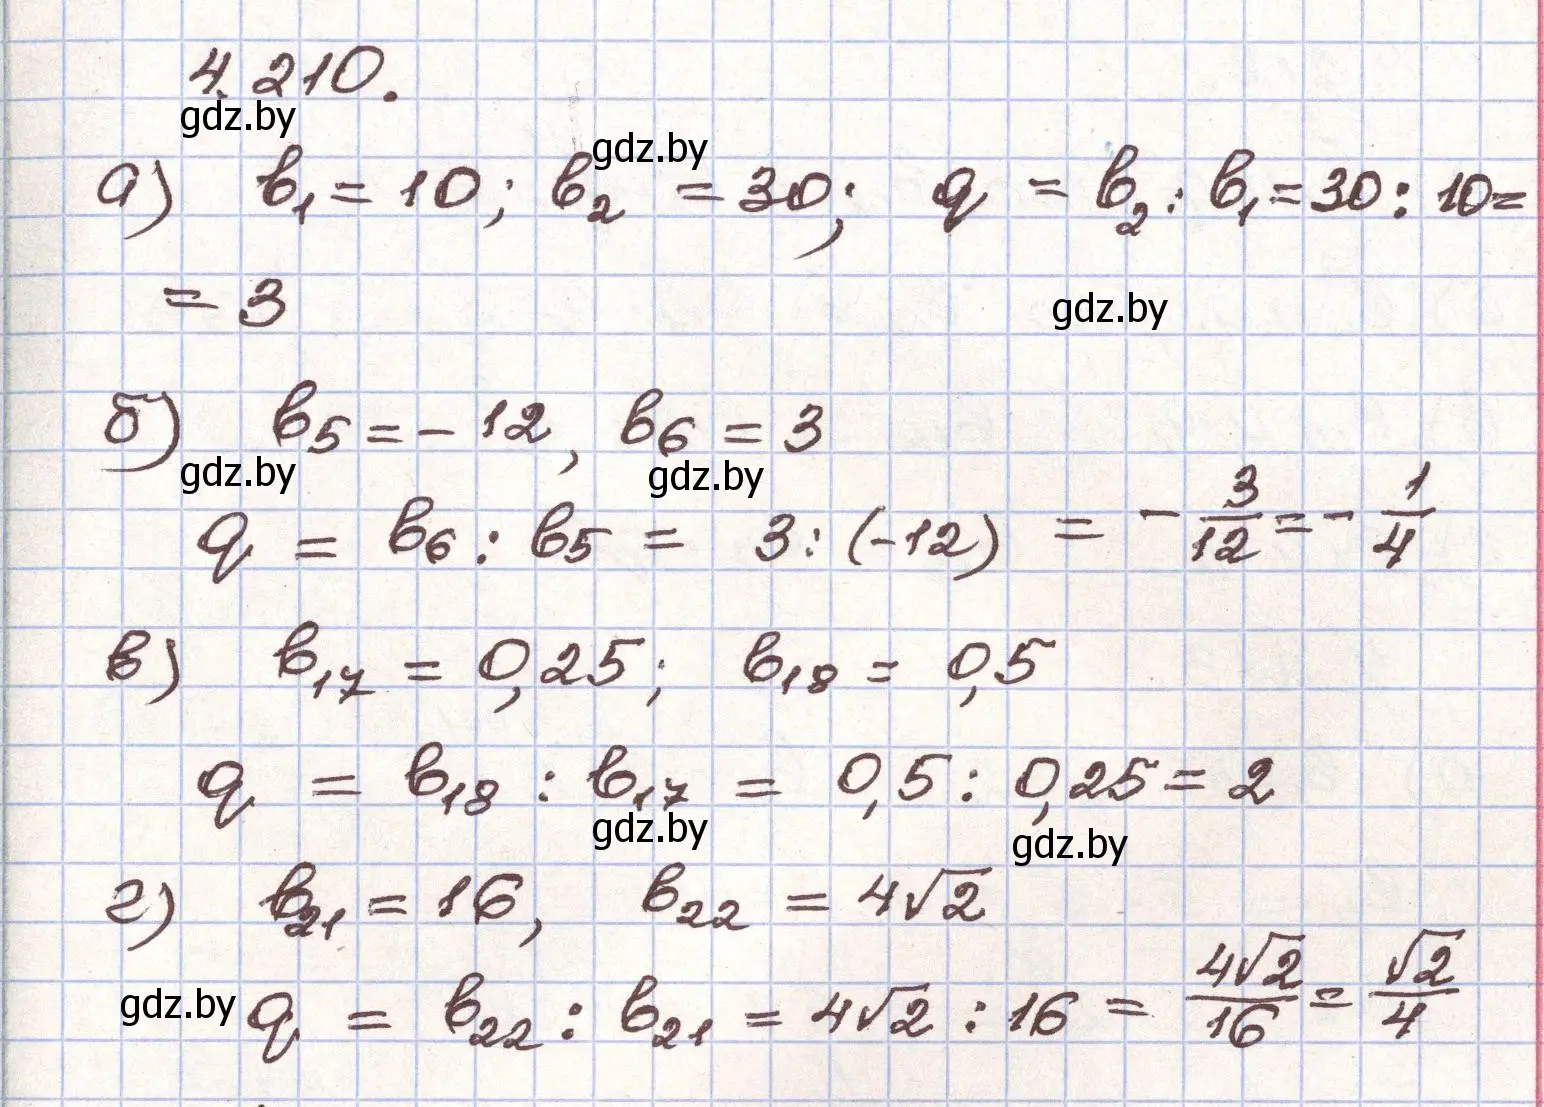 4.210.
gdz.by
gdz.by
а) b₁ = 10; b₂ = 30; q = b₂ : b₁ = 30 : 10 =
= 3
gdz.by
б) b₅ = - 12, b₆ = 3
gdz.by
gdz.by
q = b₆ : b₅ = 3 : (-12) = - 3/12 = - 1/4
в) b₁₇ = 0,25; b₁₈ = 0,5
q = b₁₈ : b₁₇ = 0,5 : 0,25 = 2
gdz.by
gdz.by
г) b₂₁ = 16, b₂₂ = 4√2
gdz.by
q = b₂₂ : b₂₁ = 4√2 : 16 = 4√2/16 = √2/4